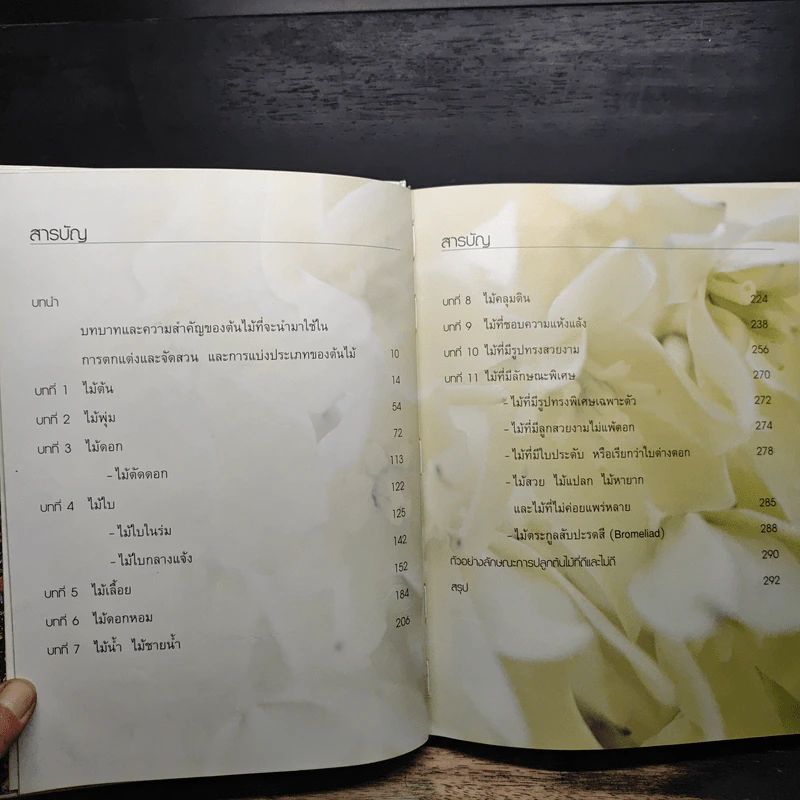 สารบัญ
บทนำ
บทบาทและความสำคัญของต้นไม้ที่จะนำมาใช้ใน
การตกแต่งและจัดสวน และการแบ่งประเภทของต้นไม้ 10
บทที่ 1 ไม้ต้น 14
บทที่ 2 ไม้พุ่ม 54
บทที่ 3 ไม้ดอก 72
- ไม้ตัดดอก 113
บทที่ 4 ไม้ใบ 122
- ไม้ใบในร่ม 125
- ไม้ใบกลางแจ้ง 142
บทที่ 5 ไม้เลื้อย 152
บทที่ 6 ไม้ดอกหอม 184
บทที่ 7 ไม้น้ำ ไม้ชายน้ำ 206
สารบัญ
บทที่ 8 ไม้คลุมดิน 224
บทที่ 9 ไม้ที่ชอบความแห้งแล้ง 238
บทที่ 10 ไม้ที่มีรูปทรงสวยงาม 256
บทที่ 11 ไม้ที่มีลักษณะพิเศษ 270
- ไม้ที่มีรูปทรงพิเศษเฉพาะตัว 272
- ไม้ที่มีลูกสวยงามไม่แพ้ดอก 274
- ไม้ที่มีใบประดับ หรือเรียกว่าใบต่างดอก 278
- ไม้สวย ไม้แปลก ไม้หายาก
และไม้ที่ไม่ค่อยแพร่หลาย 285
- ไม้ตระกูลสับปะรดสี (Bromeliad) 288
ตัวอย่างลักษณะการปลูกต้นไม้ที่ดีและไม่ดี 290
สรุป 292